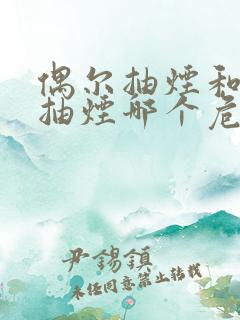 偶尔抽烟和
抽烟那个危
尹锡镇
未经同意禁止转载